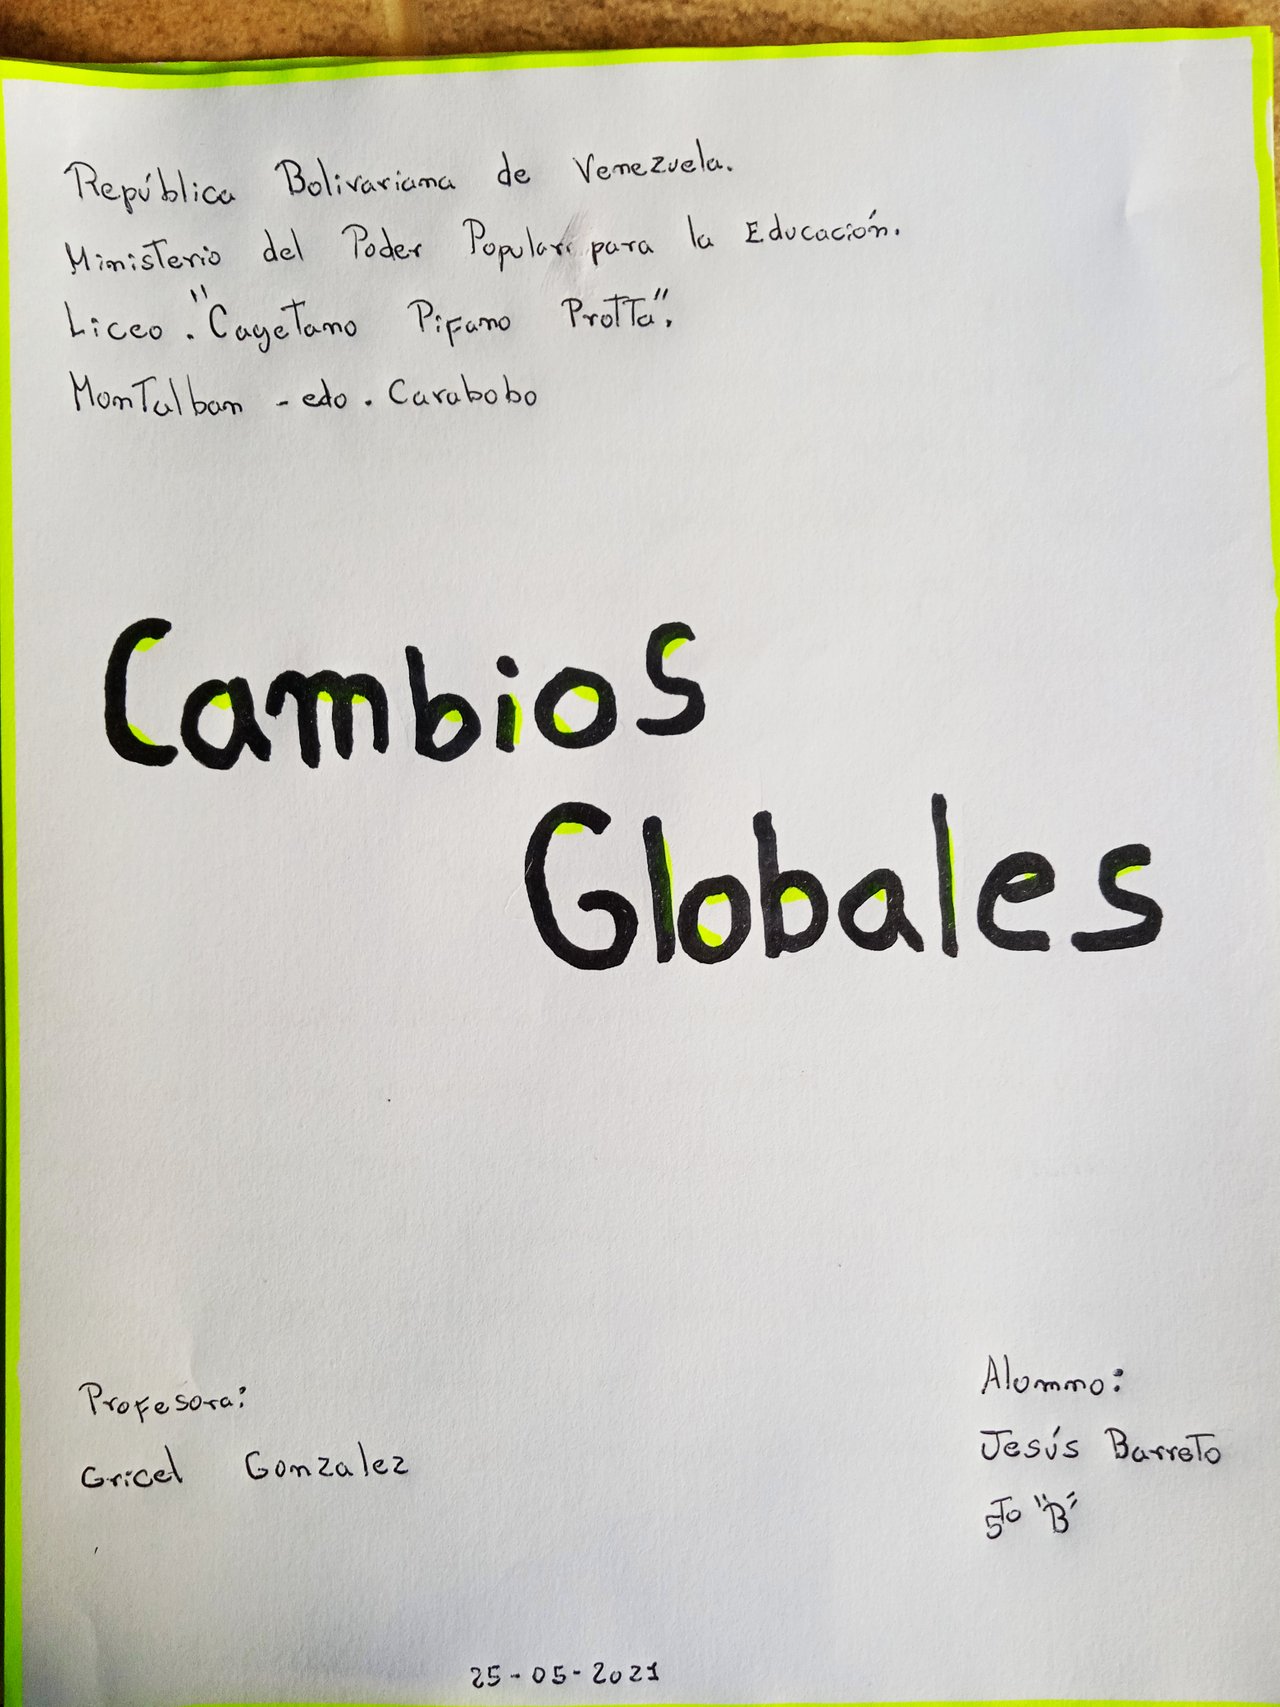 República Bolivariana de Venezuela.
Ministerio del Poder Popular para la Educación.
Liceo. "Cayetano Pifano Protta".
Montalban - edo. Carabobo
Cambios
Globales
Profesora:
Gricel Gonzalez
Alumno:
Jesús Barreto
5to "B"
25-05-2021